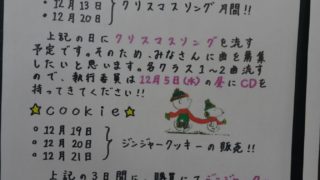 ○ 12月13日
○ 12月20日
クリスマスソング月間!!
上記の日にクリスマスソングを流す
予定です。そのため、みなさんに曲を募集
したいと思います。各クラス1〜2曲流す
ので、執行委員は12月5日(水)の昼にCDを
持ってきてください!!
☆cookie☆
○ 12月19日
○ 12月20日
○ 12月21日
ジンジャークッキーの販売!!
上記の3日間に、
ジンジャークッ